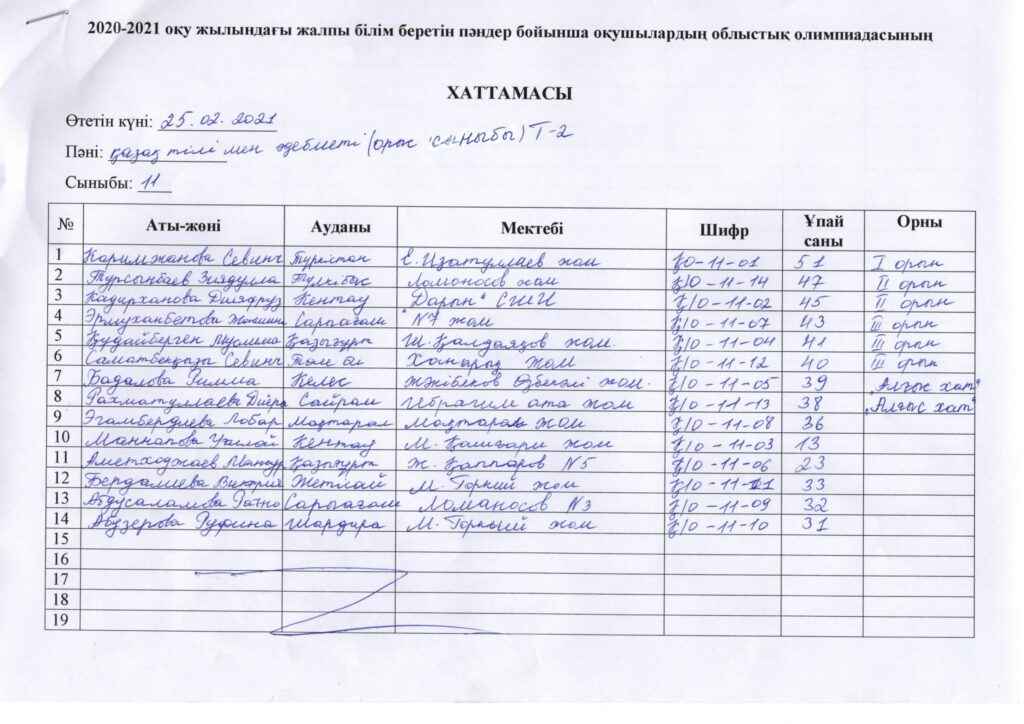 2020-2021 оқу жылындағы жалпы білім беретін пәндер бойынша оқушылардың облыстық олимпиадасының
ХАТТАМАСЫ
Өтетін күні: 25.02.2021
Пәні: қазақ тілі мен әдебиеті (орыс сыныбы) Т-2
Сыныбы: 11
№ Аты-жөні Ауданы Мектебі Шифр Ұпай саны Орны
1 Каримжанова Севинч Түркістан Е. Изатуллаев жом ҚО-11-01 51 I орын
2 Турсынбаев Зиядулла Түлкібас Ломоносов жом Қ/О-11-14 47 II орын
3 Кадирханова Дилафруз Кентау Дарын" СМИ Қ/О-11-02 45 II орын
4 Сарыағаш №7 жом Қ/О-11-07 43 III орын
5 Құдайберген Муслима Қазығұрт Ш. Қалдаяқов жом Қ/О-11-04 41 III орын
6 Саматбекқызы Севинч Том би Жом Қ/О-11-12 40 III орын
7 Бадалова Римма Келес жом. Қ/О-11-05 39 "Алғыс хат"
8 Рахматуллаева Сайрам Ибрагим ата жом Қ/О-11-13 38 "Алғыс хат"
9 Эгамбердиева Лобар Мақтарал Мақтарал жом Қ/О-11-08 36
10 Маннапова Кентау М. Қашғари жом Қ/О-11-03 13
11 Аметходжаев Қазығұрт Ж. Қаппаров №5 Қ/О-11-06 23
12 Бердалиева Виктория Жетісай М. Горкий жом Қ/О-11-11 33
13 Абдусаламова Сарыағаш Ломаносов №3 Қ/О-11-09 32
14 Абузерова Руфина Шардара М. Горький жом Қ/О-11-10 31
15
16
17
18
19